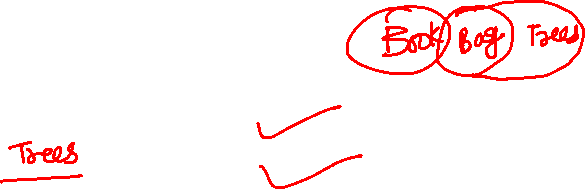 Book Bag Trees
Trees